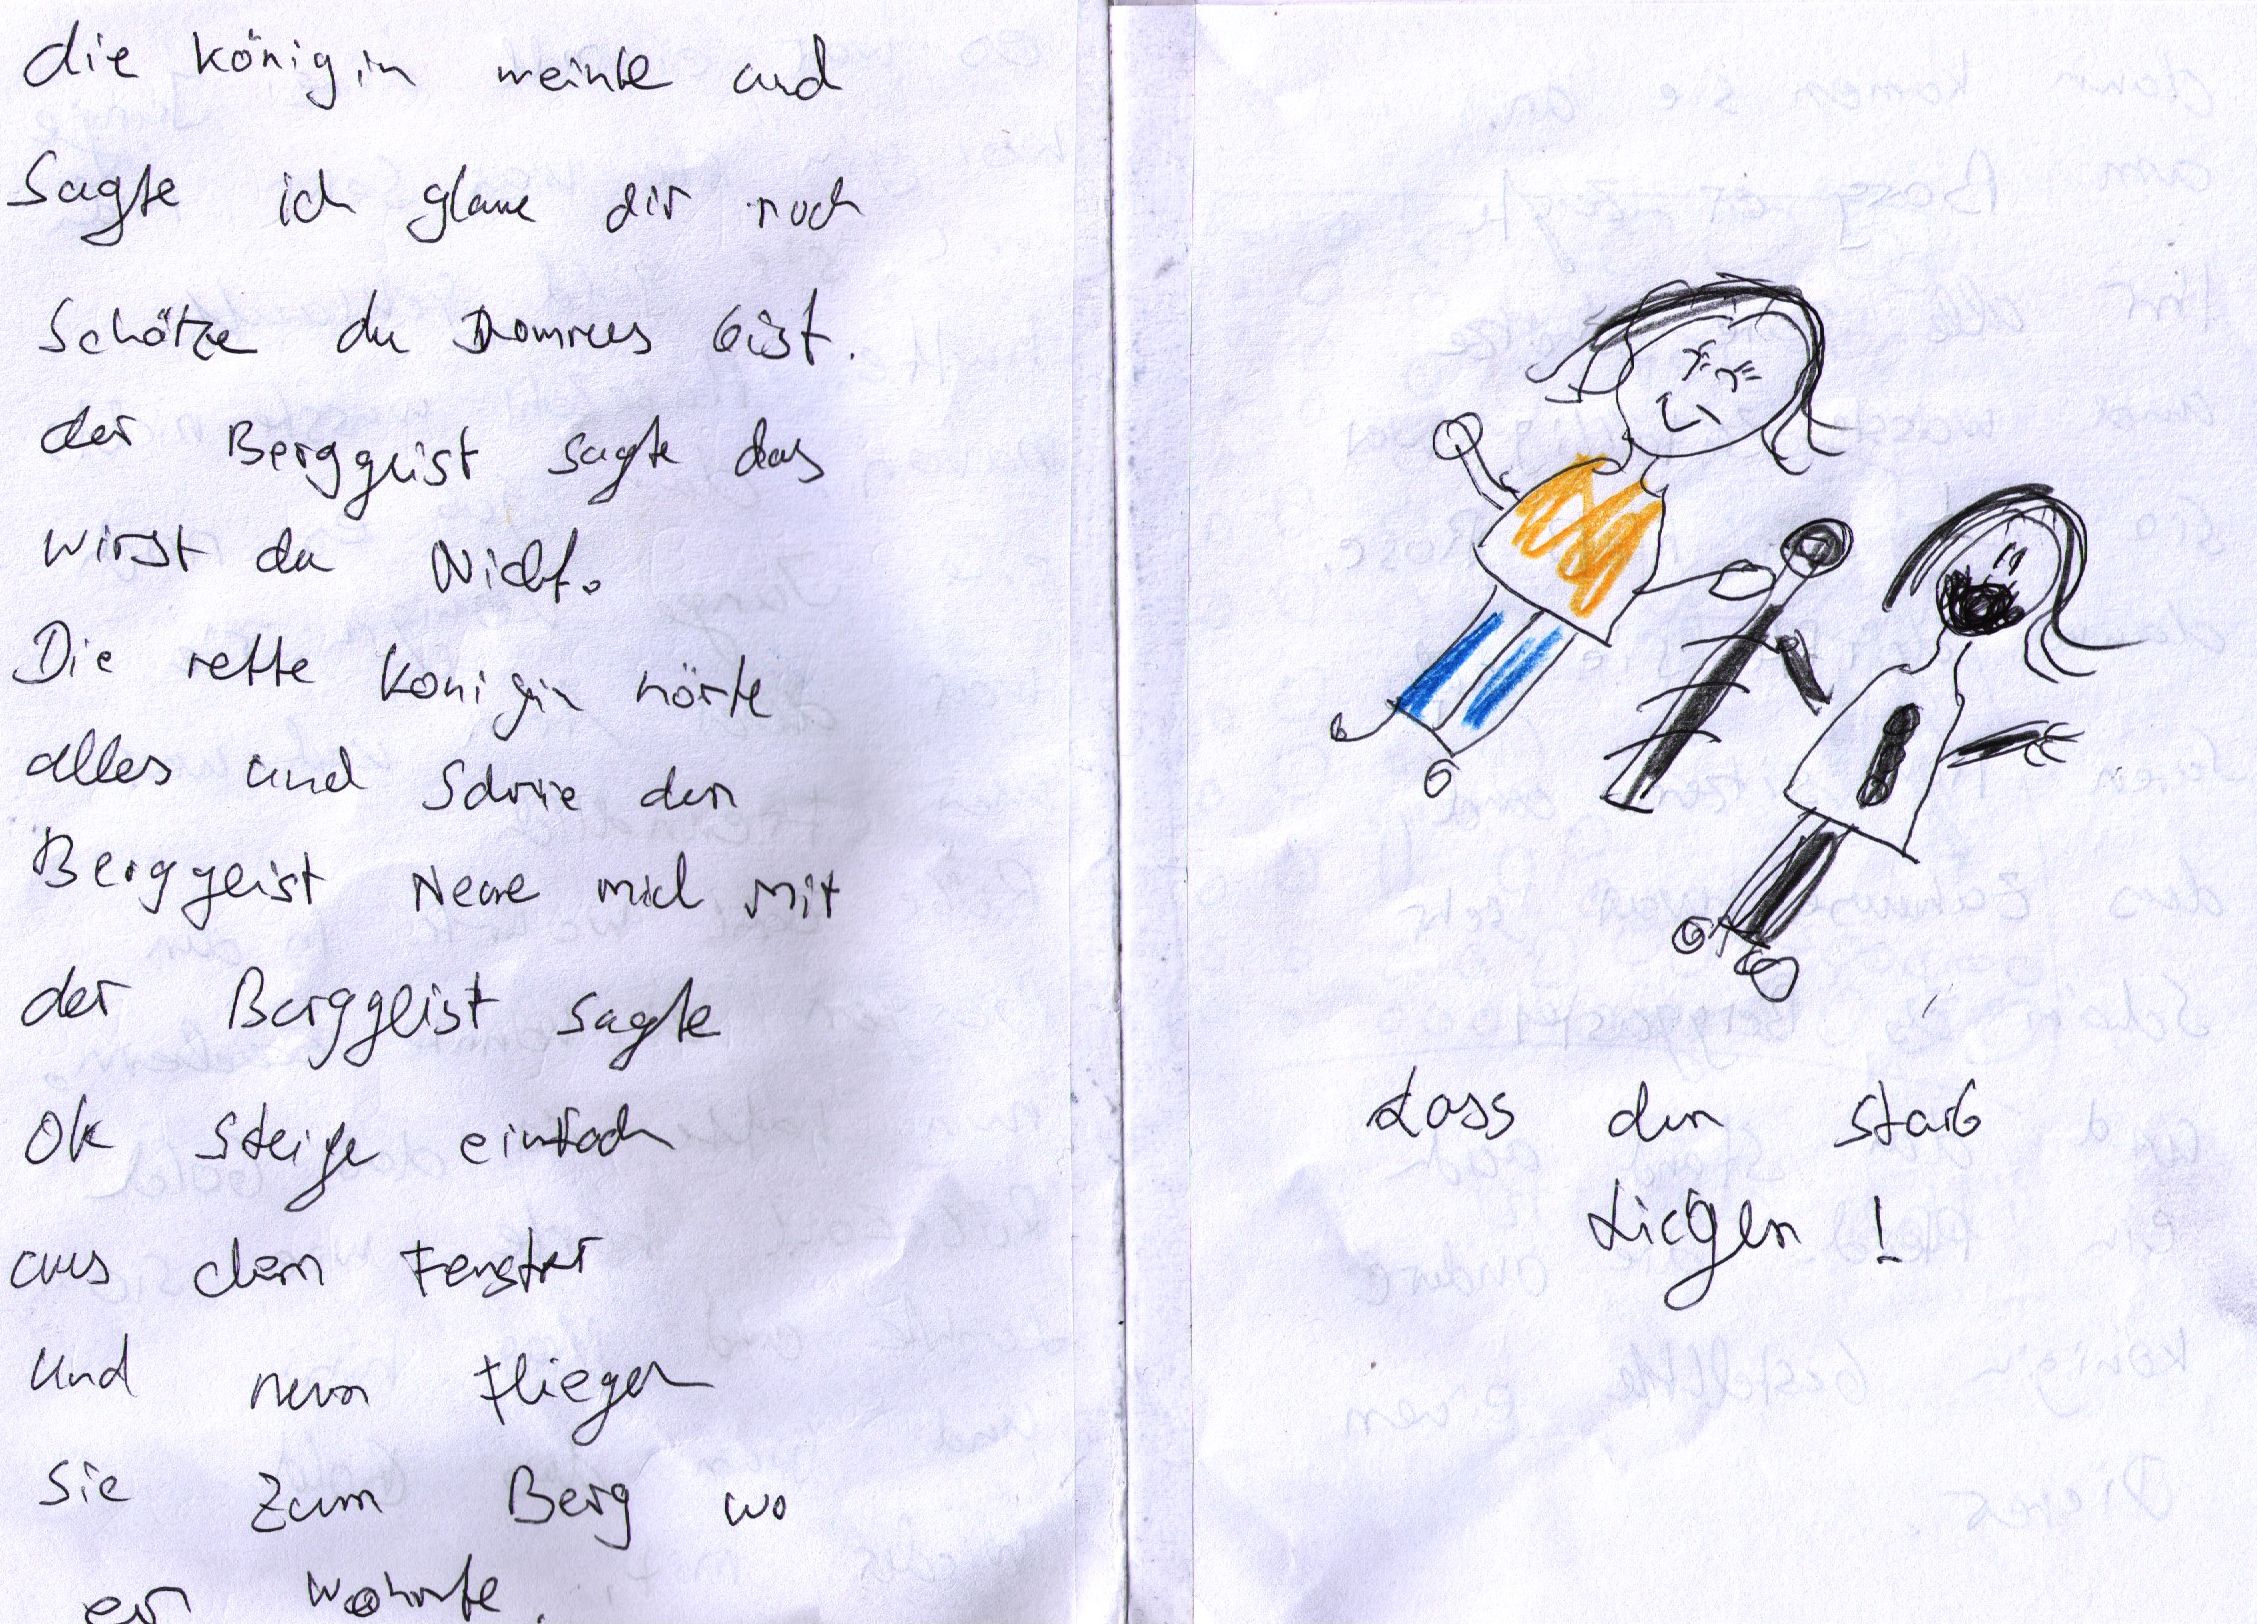 die königin weinte und
Sagte ich glaue dir noch
Schätze du Domres bist.
der Berggeist sagte das
wirst du Nicht.
Die rette Konigin hörte
alles und Schrie den
Berggeist Neme mich Mit
der Berggeist sagte
OK steige einfach
aus dem Fenster
Und nun Fliegen
Sie zum Berg wo
er wohnte.
Lass den stab
Liegen !